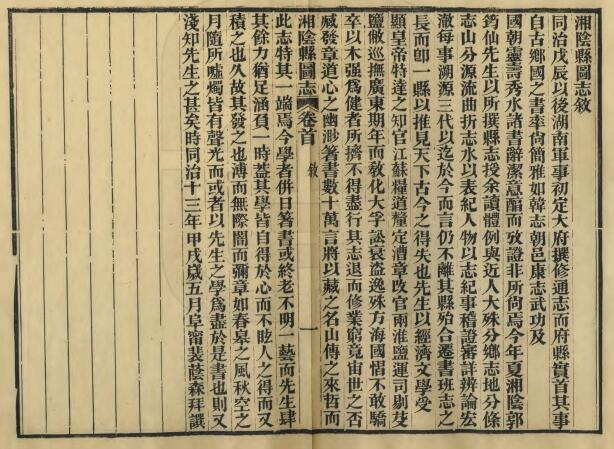 湘陰縣圖志敘
同治戊辰以後湖南軍事初定大府撰修通志而府縣實首其事
自古鄉國之書率尙簡雅如韓志朝邑康志武功及
國朝靈壽秀水諸書辭潔意酯而攷證非所尙焉今年夏湘陰郭
筠仙先生以所撰縣志授余讀體例與近人大殊分鄉志地分條
志山分源流曲折志水以表紀人物以志紀事稽證審詳辨論宏
澈每事溯源三代以迄於今而言仍不離其縣殆合遷書班志之
長而卽一縣以推見天下古今之得失也先生以經濟文學受
顯皇帝特達之知官江蘇糧道釐定漕章改官兩淮鹽運司剔芟
鹽敝巡撫廣東期年而敎化大孚訟衰盜逸殊方海國慴不敢驕
卒以木强爲健者所擠不得盡行其志退而修業窮竟宙世之否
臧發章道心之幽渺箸書數十萬言將以藏之名山傳之來哲而
湘陰縣圖志 卷首 敘 一
此志特其一端焉今學者併日箸書或終老不明一藝而先生肆
其餘力猶足涵負一時蓋其學皆自得於心而不貶人之得而又
積之也久故其發之也溥而無際闇而彌章如春皋之風秋空之
月隨所噓燭皆有聲光而或者以先生之學爲盡於是書也則又
淺知先生之甚矣時同治十三年甲戌歲五月阜甯裴蔭森拜譔